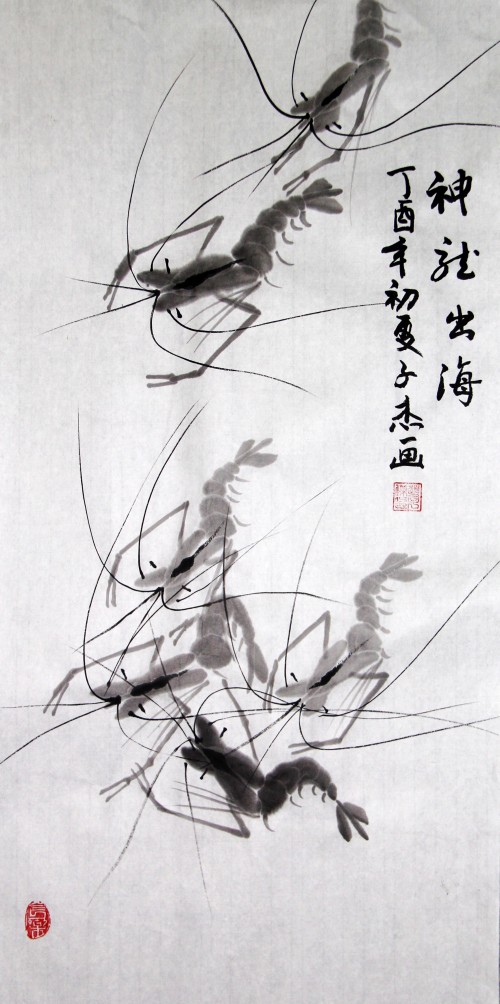 神龍出海
丁酉年初夏子杰画